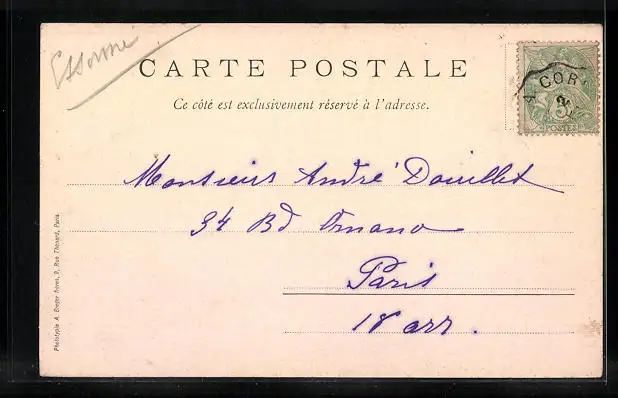 Essonne
CARTE POSTALE
Ce côté est exclusivement réservé à l'adresse.
COR
5
POSTES
Monsieur André Douillet
34 Bd Ornano
Paris
18 arr.
Phototypie A. Breger frères, 9, Rue Thénard, Paris.